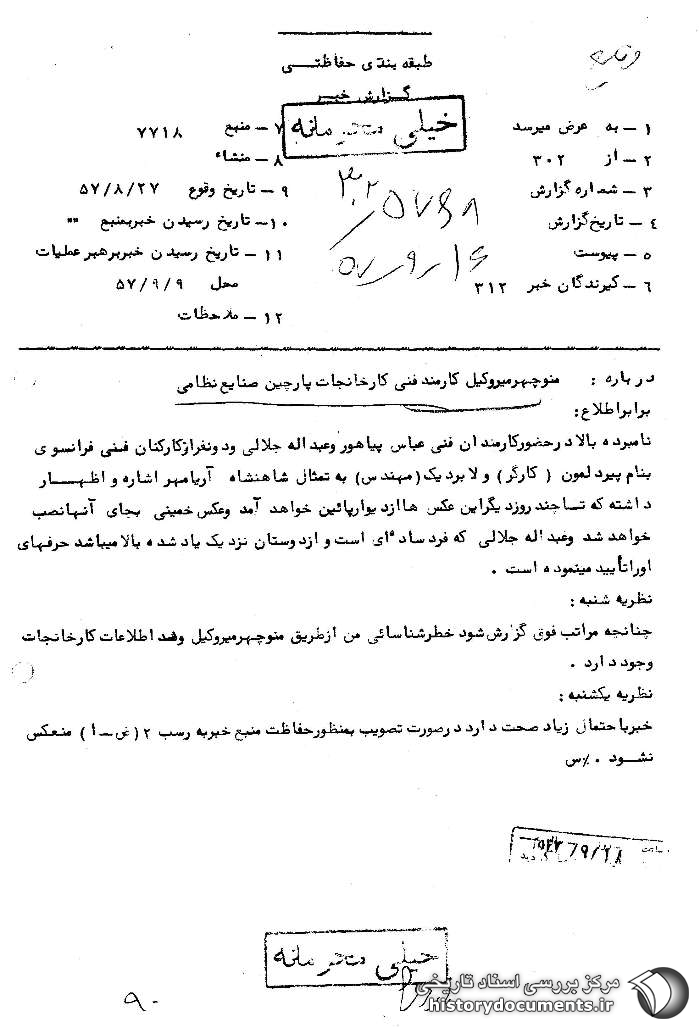 طبقه بندی حفاظتی
گزارش خبر
خیلی محرمانه
۱ – به عرض میرسد
۲ – از ۳۰۲
۳ – شماره گزارش ۳۰۲/۵۷۶۸
۴ – تاریخ گزارش ۵۷/۹/۱۶
۵ – پیوست
۶ – گیرندگان خبر ۳۱۲
۷ – منبع ۷۷۱۸
۸ – منشاء
۹ – تاریخ وقوع ۵۷/۸/۲۷
۱۰ – تاریخ رسیدن خبر بمنبع " "
۱۱ – تاریخ رسیدن خبر برهبر عملیات
محل ۵۷/۹/۹
۱۲ – ملاحظات
درباره : منوچهر میروکیل کارمند فنی کارخانجات پارچین صنایع نظامی
برابر اطلاع :
نامبرده بالا در حضور کارمندان فنی عباس پیاهور و عبداله جلالی و دو نفر از کارکنان فنی فرانسوی
بنام پیرد لمون ( کارگر ) و لا برد یک (مهندس) به تمثال شاهنشاه آریامهر اشاره و اظهار
داشته که تا چند روز دیگر این عکس ها از دیوار پائین خواهد آمد و عکس خمینی بجای آنها نصب
خواهد شد و عبداله جلالی که فرد ساده ای است و از دوستان نزدیک یاد شده بالا میباشد حرفهای
او را تأیید مینموده است .
نظریه شنبه :
چنانچه مراتب فوق گزارش شود خطر شناسائی من از طریق منوچهر میروکیل و ضد اطلاعات کارخانجات
وجود دارد .
نظریه یکشنبه :
خبر با احتمال زیاد صحت دارد در صورت تصویب بمنظور حفاظت منبع خبر به رسب ۲ (ض – ا) منعکس
نشود . ٪س
خیلی محرمانه
۹۰
مرکز بررسی اسناد تاریخی
historydocuments.ir